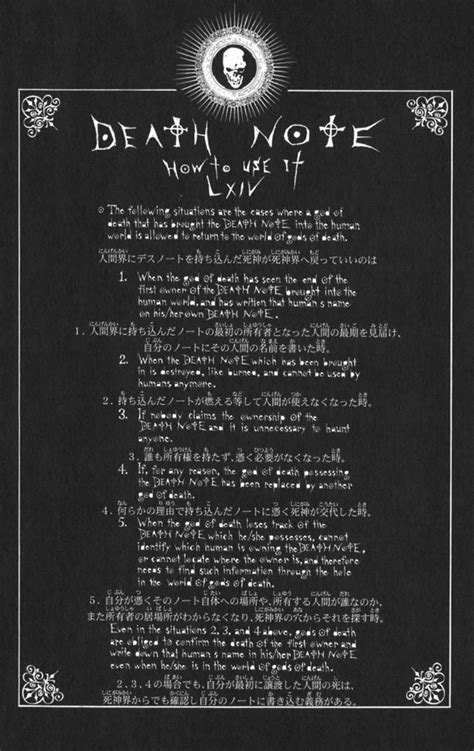 DEATH NOTE
HOW TO USE IT
LXIV
The following situations are the cases where a god of
death that has brought the DEATH NOTE into the human
world is allowed to return to the world of gods of death.
人間界にデスノートを持ち込んだ死神が死神界へ戻っていいのは
1. When the god of death has seen the end of the
first owner of the DEATH NOTE brought into the
human world, and has written that human's name
on his/her own DEATH NOTE.
1．人間界に持ち込んだノートの最初の所有者となった人間の最期を見届け、
自分のノートにその人間の名前を書いた時。
2. When the DEATH NOTE which has been brought
in is destroyed, like burned, and cannot be used by
humans anymore.
2．持ち込んだノートが燃える等して人間が使えなくなった時。
3. If nobody claims the ownership of the
DEATH NOTE and it is unnecessary to haunt
anyone.
3．誰も所有権を持たず、憑く必要がなくなった時。
4. If, for any reason, the god of death possessing
the DEATH NOTE has been replaced by another
god of death.
4．何らかの理由で持ち込んだノートに憑く死神が交代した時。
5. When the god of death loses track of the
DEATH NOTE which he/she possesses, cannot
identify which human is owning the DEATH NOTE,
or cannot locate where the owner is, and therefore
needs to find such information through the hole
in the world of gods of death.
5．自分が憑くそのノート自体への場所や、所有する人間が誰なのか、
また所有者の居場所がわからなくなり、死神界の穴からそれを探す時。
Even in the situations 2, 3, and 4 above, gods of death
are obliged to confirm the death of the first owner and
write down that human's name in his/her DEATH NOTE
even when he/she is in the world of gods of death.
2、3、4の場合でも、自分が最初に譲渡した人間の死は、
死神界からでも確認し自分のノートに書き込む義務がある。